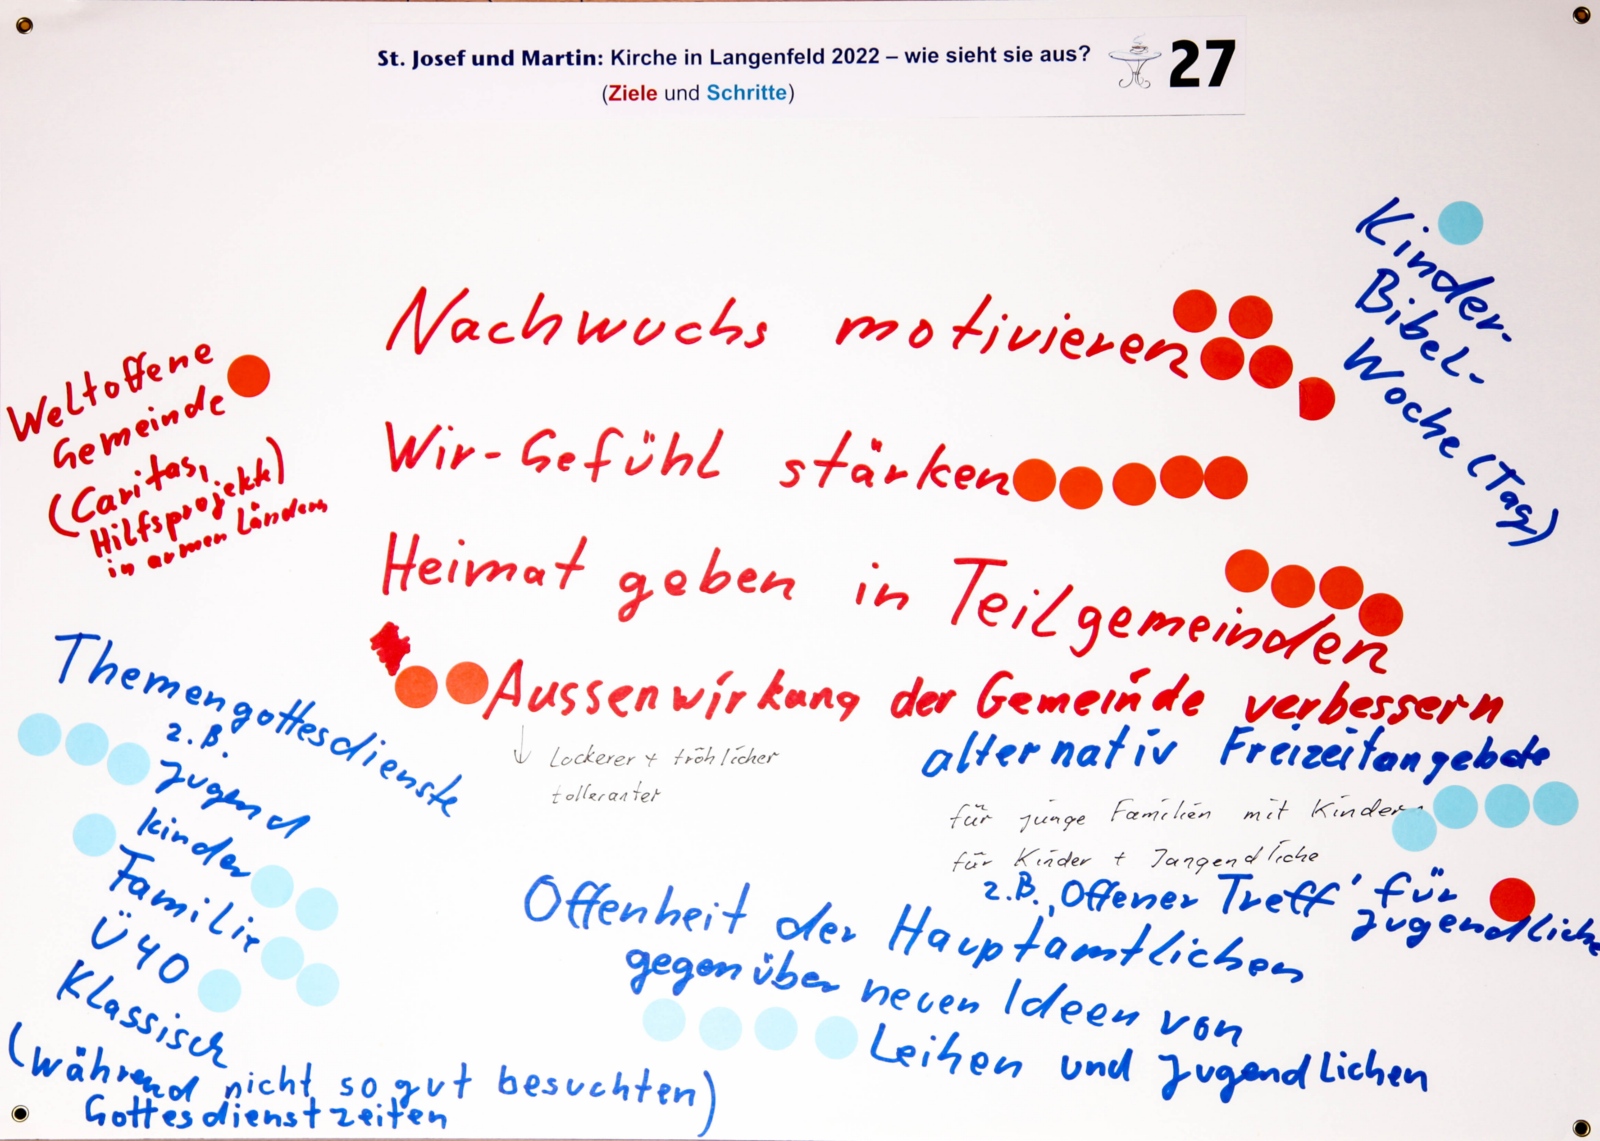 St. Josef und Martin: Kirche in Langenfeld 2022 – wie sieht sie aus?
(Ziele und Schritte)
27
Kinder-
Bibel-
Woche (Tag)
Nachwuchs motivieren
Wir-Gefühl stärken
Heimat geben in Teilgemeinden
Aussenwirkung der Gemeinde verbessern
Lockerer + fröhlicher
tolleranter
Weltoffene
Gemeinde
(Caritas,
Hilfsprojekte)
in armen Ländern
alternativ Freizeitangebote
für junge Familien mit Kindern
für Kinder + Jungendliche
z.B. 'Offener Treff' für
Jugendliche
Themengottesdienste
z.B.
Jugend
Kinder
Familie
Ü40
Klassisch
(während nicht so gut besuchten)
Gottesdienstzeiten
Offenheit der Hauptamtlichen
gegenüber neuen Ideen von
Leihen und Jugendlichen